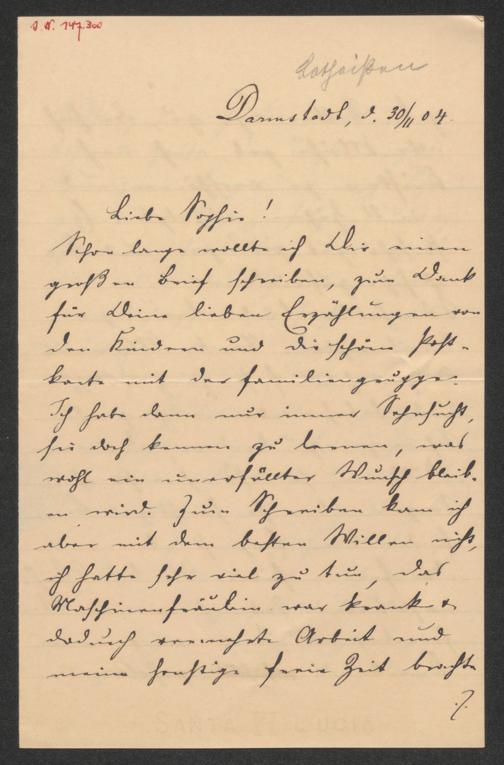 J. N. 147.300
Lotheißen
Darmstadt, d. 30/11 04.
Liebe Sophie!
Schon lange wollte ich Dir einen
großen Brief schreiben, zum Dank
für Deine lieben Erzählungen von
den Kindern und die schöne Post-
karte mit der Familiengruppe.
Ich habe dann nur immer Sehnsucht,
sie doch kennen zu lernen, was
wohl ein unerfüllter Wunsch bleib-
en wird. Zum Schreiben kam ich
aber mit dem besten Willen nicht,
ich hatte sehr viel zu tun, das
Maschinenfräulein war krank &
dadurch vermehrte Arbeit und
meine sonstige freie Zeit brachte
./.